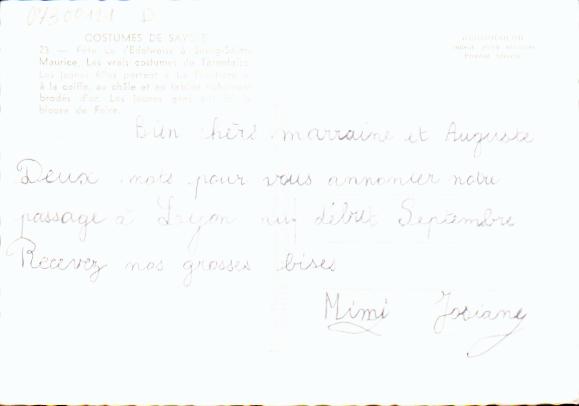 D
COSTUMES DE SAVOIE
23. — Fête de l'Edelweiss à Bourg-Saint-
Maurice. Les vrais costumes de Tarentaise.
Les jeunes filles portent
à la coiffe, au châle et au tablier richement
brodés d'or. Les jeunes gens ont la
blouse de Foire.
Bien chère marraine et Auguste
Deux mots pour vous annoncer notre
passage à Lyon au début Septembre
Recevez nos grosses bises
Mimi Josiane